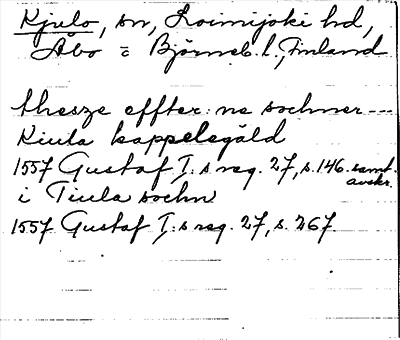 Kjulo, sn, Loimijoki hd,
Åbo o Björneb. l., Finland
thesze effter: ne sochner ---
Kiula kappelegäld
1557 Gustaf I: s reg. 27, s. 146. samt. avskr.
i Tiula sochn
1557 Gustaf I: s reg. 27, s. 267.